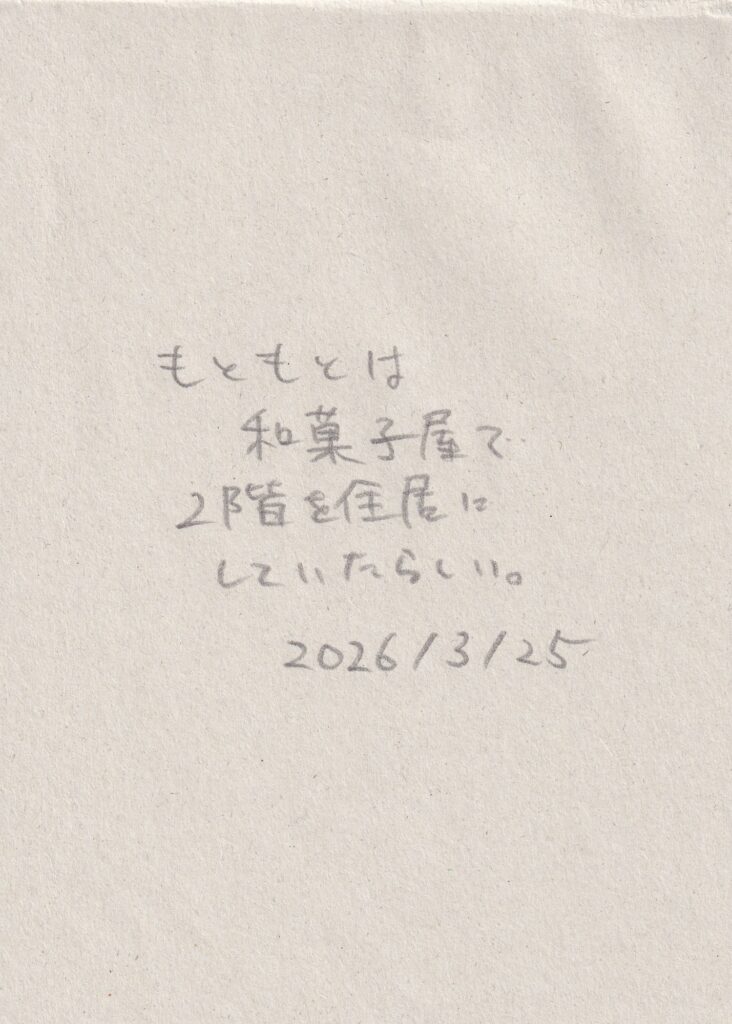 もともとは
和菓子屋で
2階を住居に
していたらしい。
2026/3/25